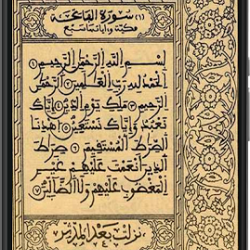 (١) سورة الفاتحة
مكية وآياتها سبع
بسم الله الرحمن الرحيم
الحمد لله رب العلمين الرحمن
الرحيم ملك يوم الدين إياك
نعبد وإياك نستعين اهدنا
الصرط المستقيم صرط
الذين أنعمت عليهم غير
المغضوب عليهم ولا الضالين
نزلت بعد المدثر